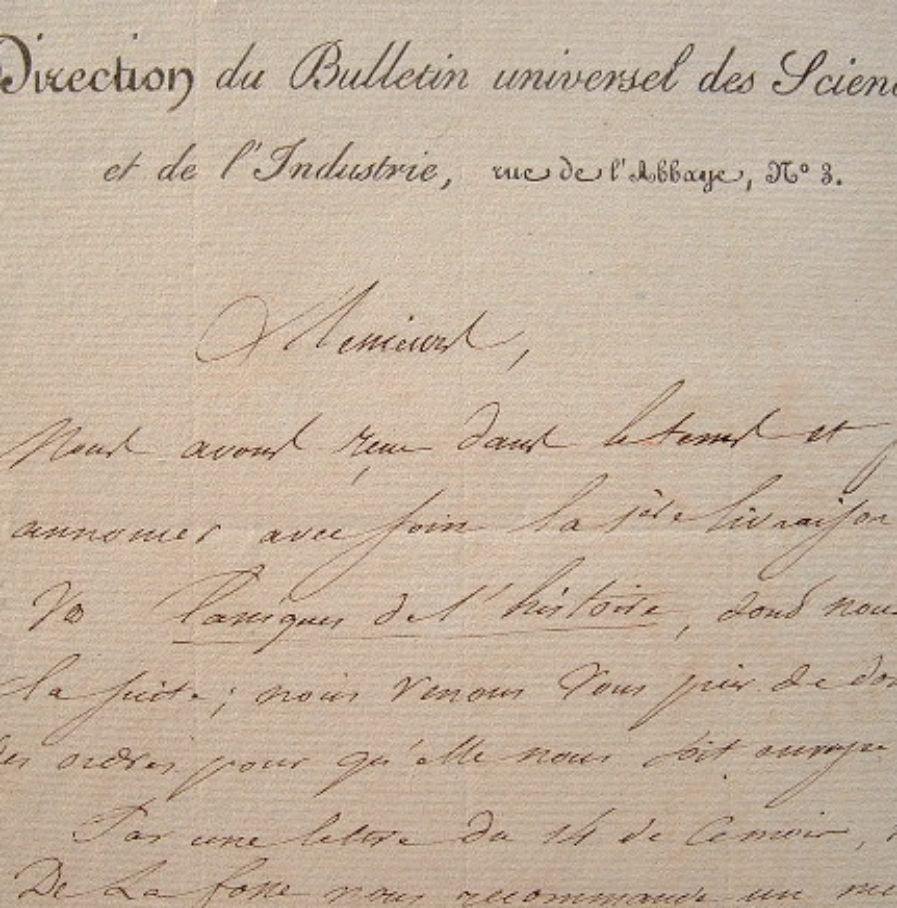 Direction du Bulletin universel des Scien
et de l'Industrie, rue de l'Abbaye, N° 3.
Messieurs,
Nous avons reçu dans le tems et
annoncer avec soin la 1ère livraison
Vo de l'histoire, dont nous
la suite; nous venons vous prier de do
des ordres pour qu'elle nous soit envoyée
Par une lettre du 14 de Ce mois,
De La fosse nous recommande un me